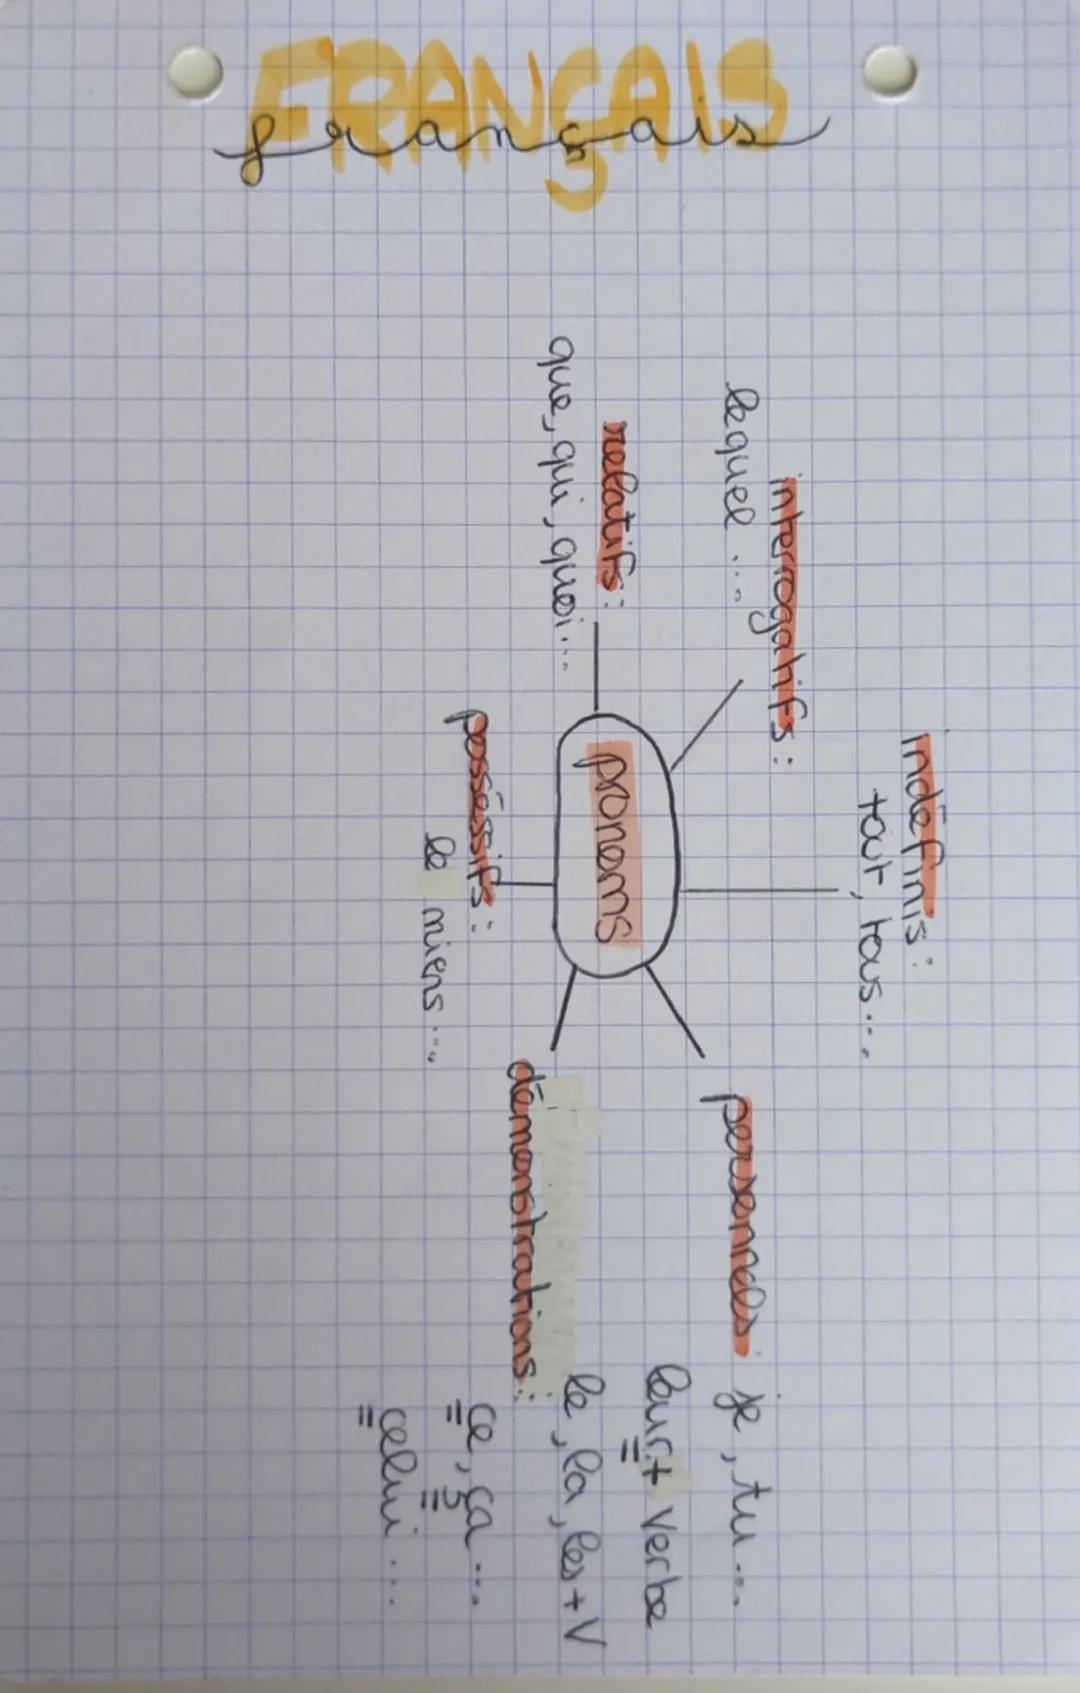 FRANÇAIS
français
indéfinis:
tout, tous...
interrogatifs:
lequel ...
relatifs:
que, qui, quoi...
pronoms
personnels: je, tu...
leur + verbe
le, la, les + V
démonstrations:
ce, ça ...
celui ...
posséssifs:
le miens ...